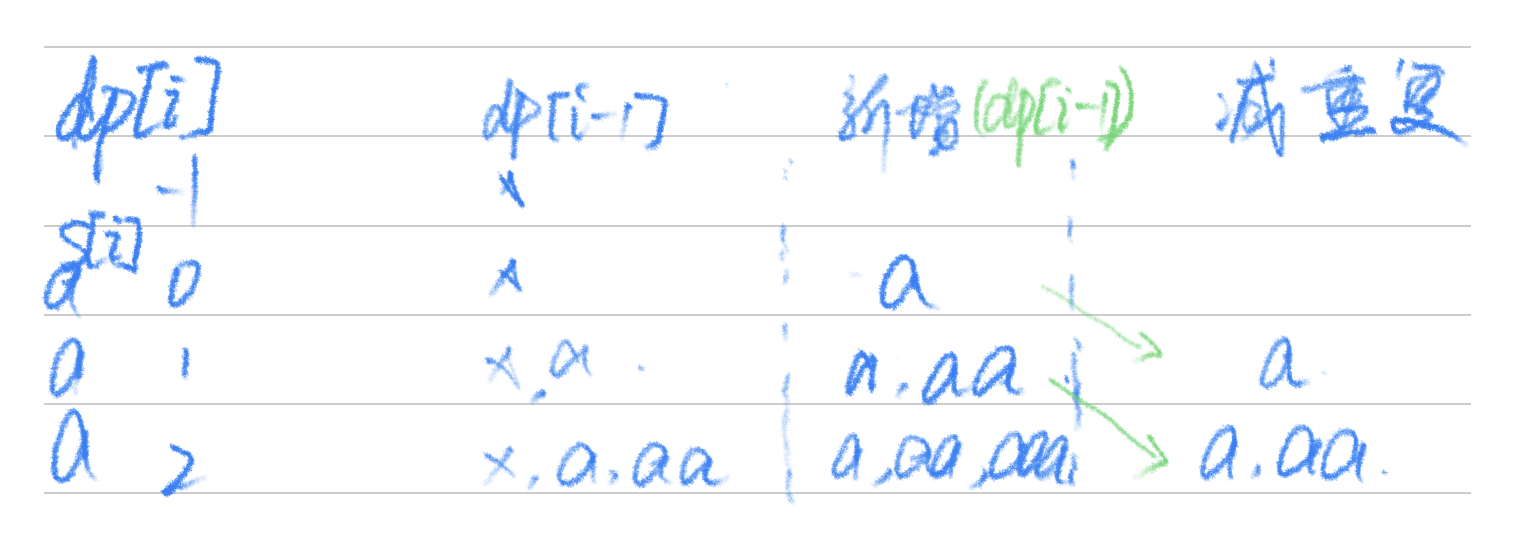 dp[i] dp[i-1] 新增(dp[i-1]) 减重复
-1 x
s[i]
a 0 x a
a 1 x,a. a.aa a.
a 2 x,a.aa a,aa,aaa, a.aa.